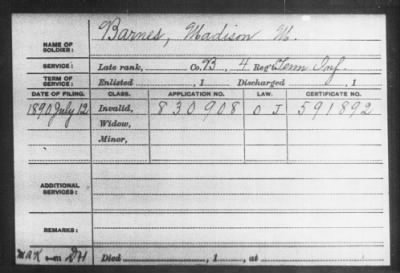 NAME OF SOLDIER: Barnes, Madison M.
SERVICE: Late rank, Co. B, 4 Reg't Tenn Inf.
TERM OF SERVICE: Enlisted , 1 Discharged , 1
DATE OF FILING. CLASS. APPLICATION NO. LAW. CERTIFICATE NO.
1890 July 12 Invalid, 830908 O J 591892
Widow,
Minor,
ADDITIONAL SERVICES:
REMARKS:
Died , 1 , at